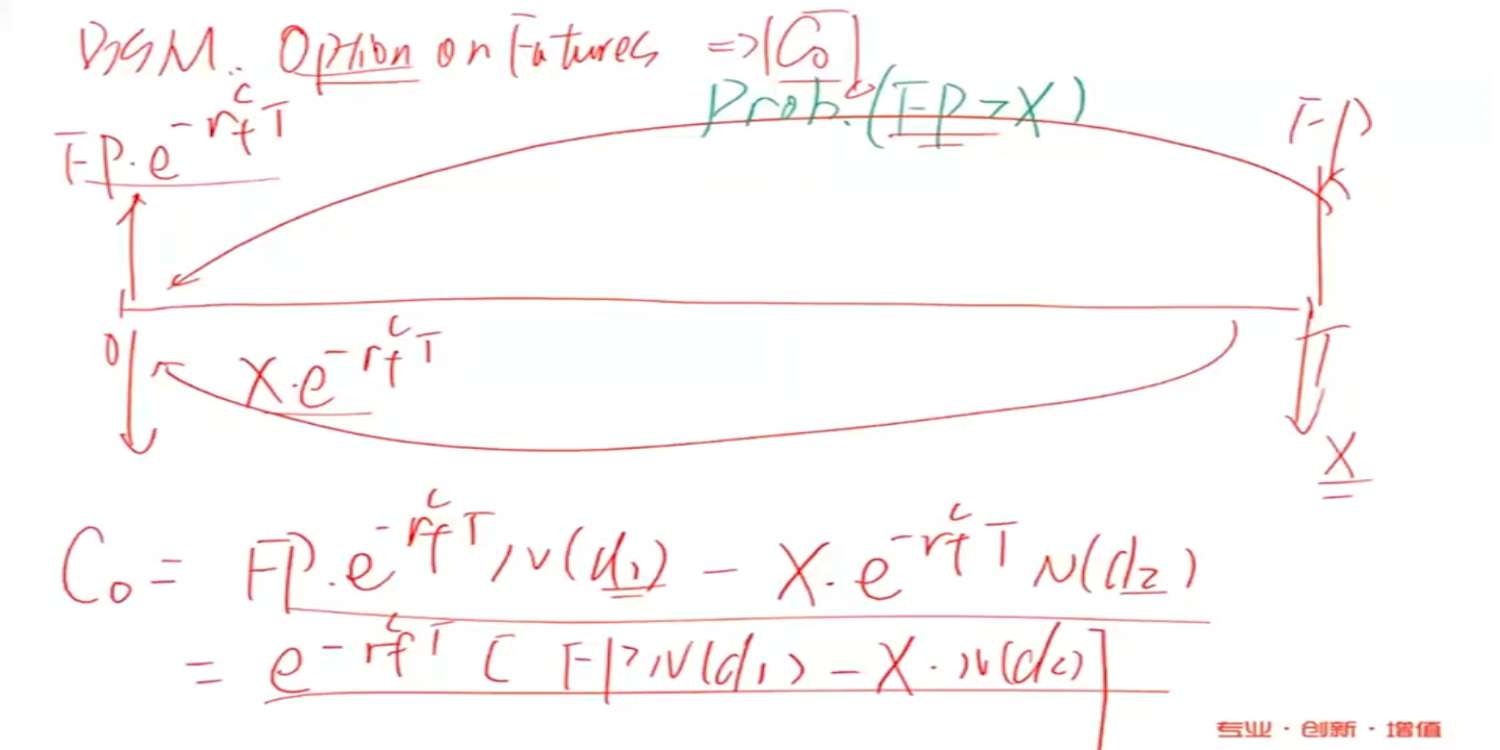 BSM: Option on Futures => C₀
Prob.(FP>X)
FP·e^{-r_f^c T}
FP
0
T
X·e^{-r_f^c T}
X
C₀ = FP·e^{-r_f^c T} N(d₁) - X·e^{-r_f^c T} N(d₂)
= e^{-r_f^c T} [FP N(d₁) - X·N(d₂)]
专业·创新·增值